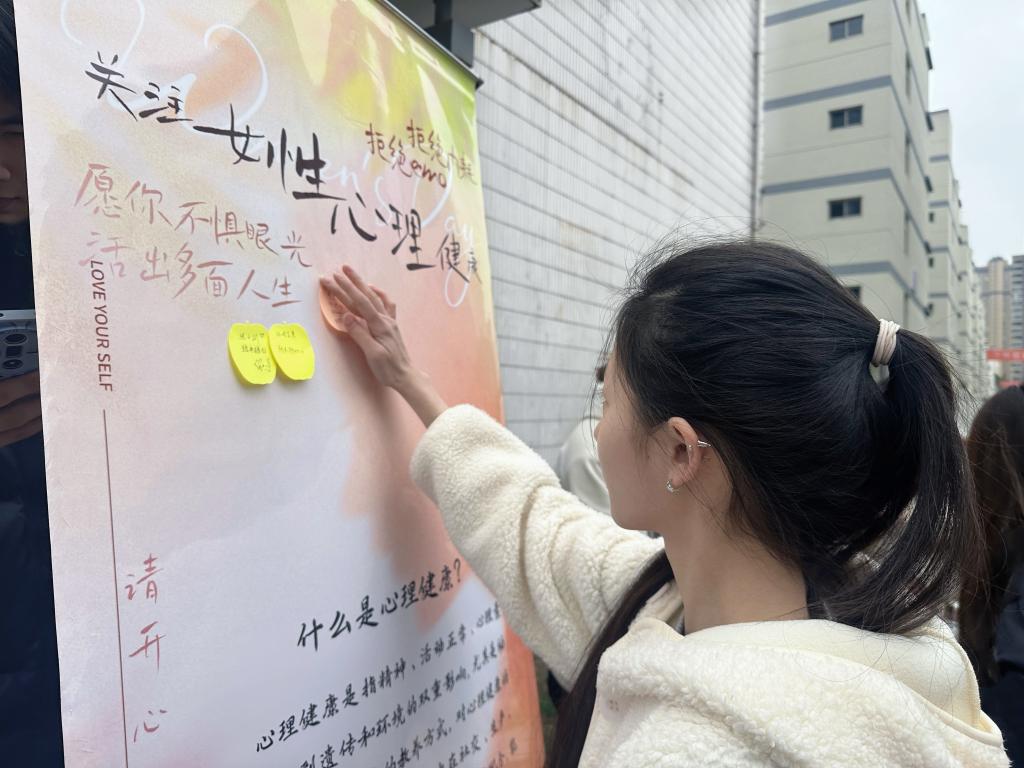 关注
女性
心理
健康
拒绝
拒绝emo
愿你不惧眼光
活出多面人生
LOVE YOUR SELF
请开心
什么是心理健康?
心理健康是指精神、活动正常、心理素
到遗传和环境的双重影响,尤其是
的教养方式,对心理健康的
在社交、生产、